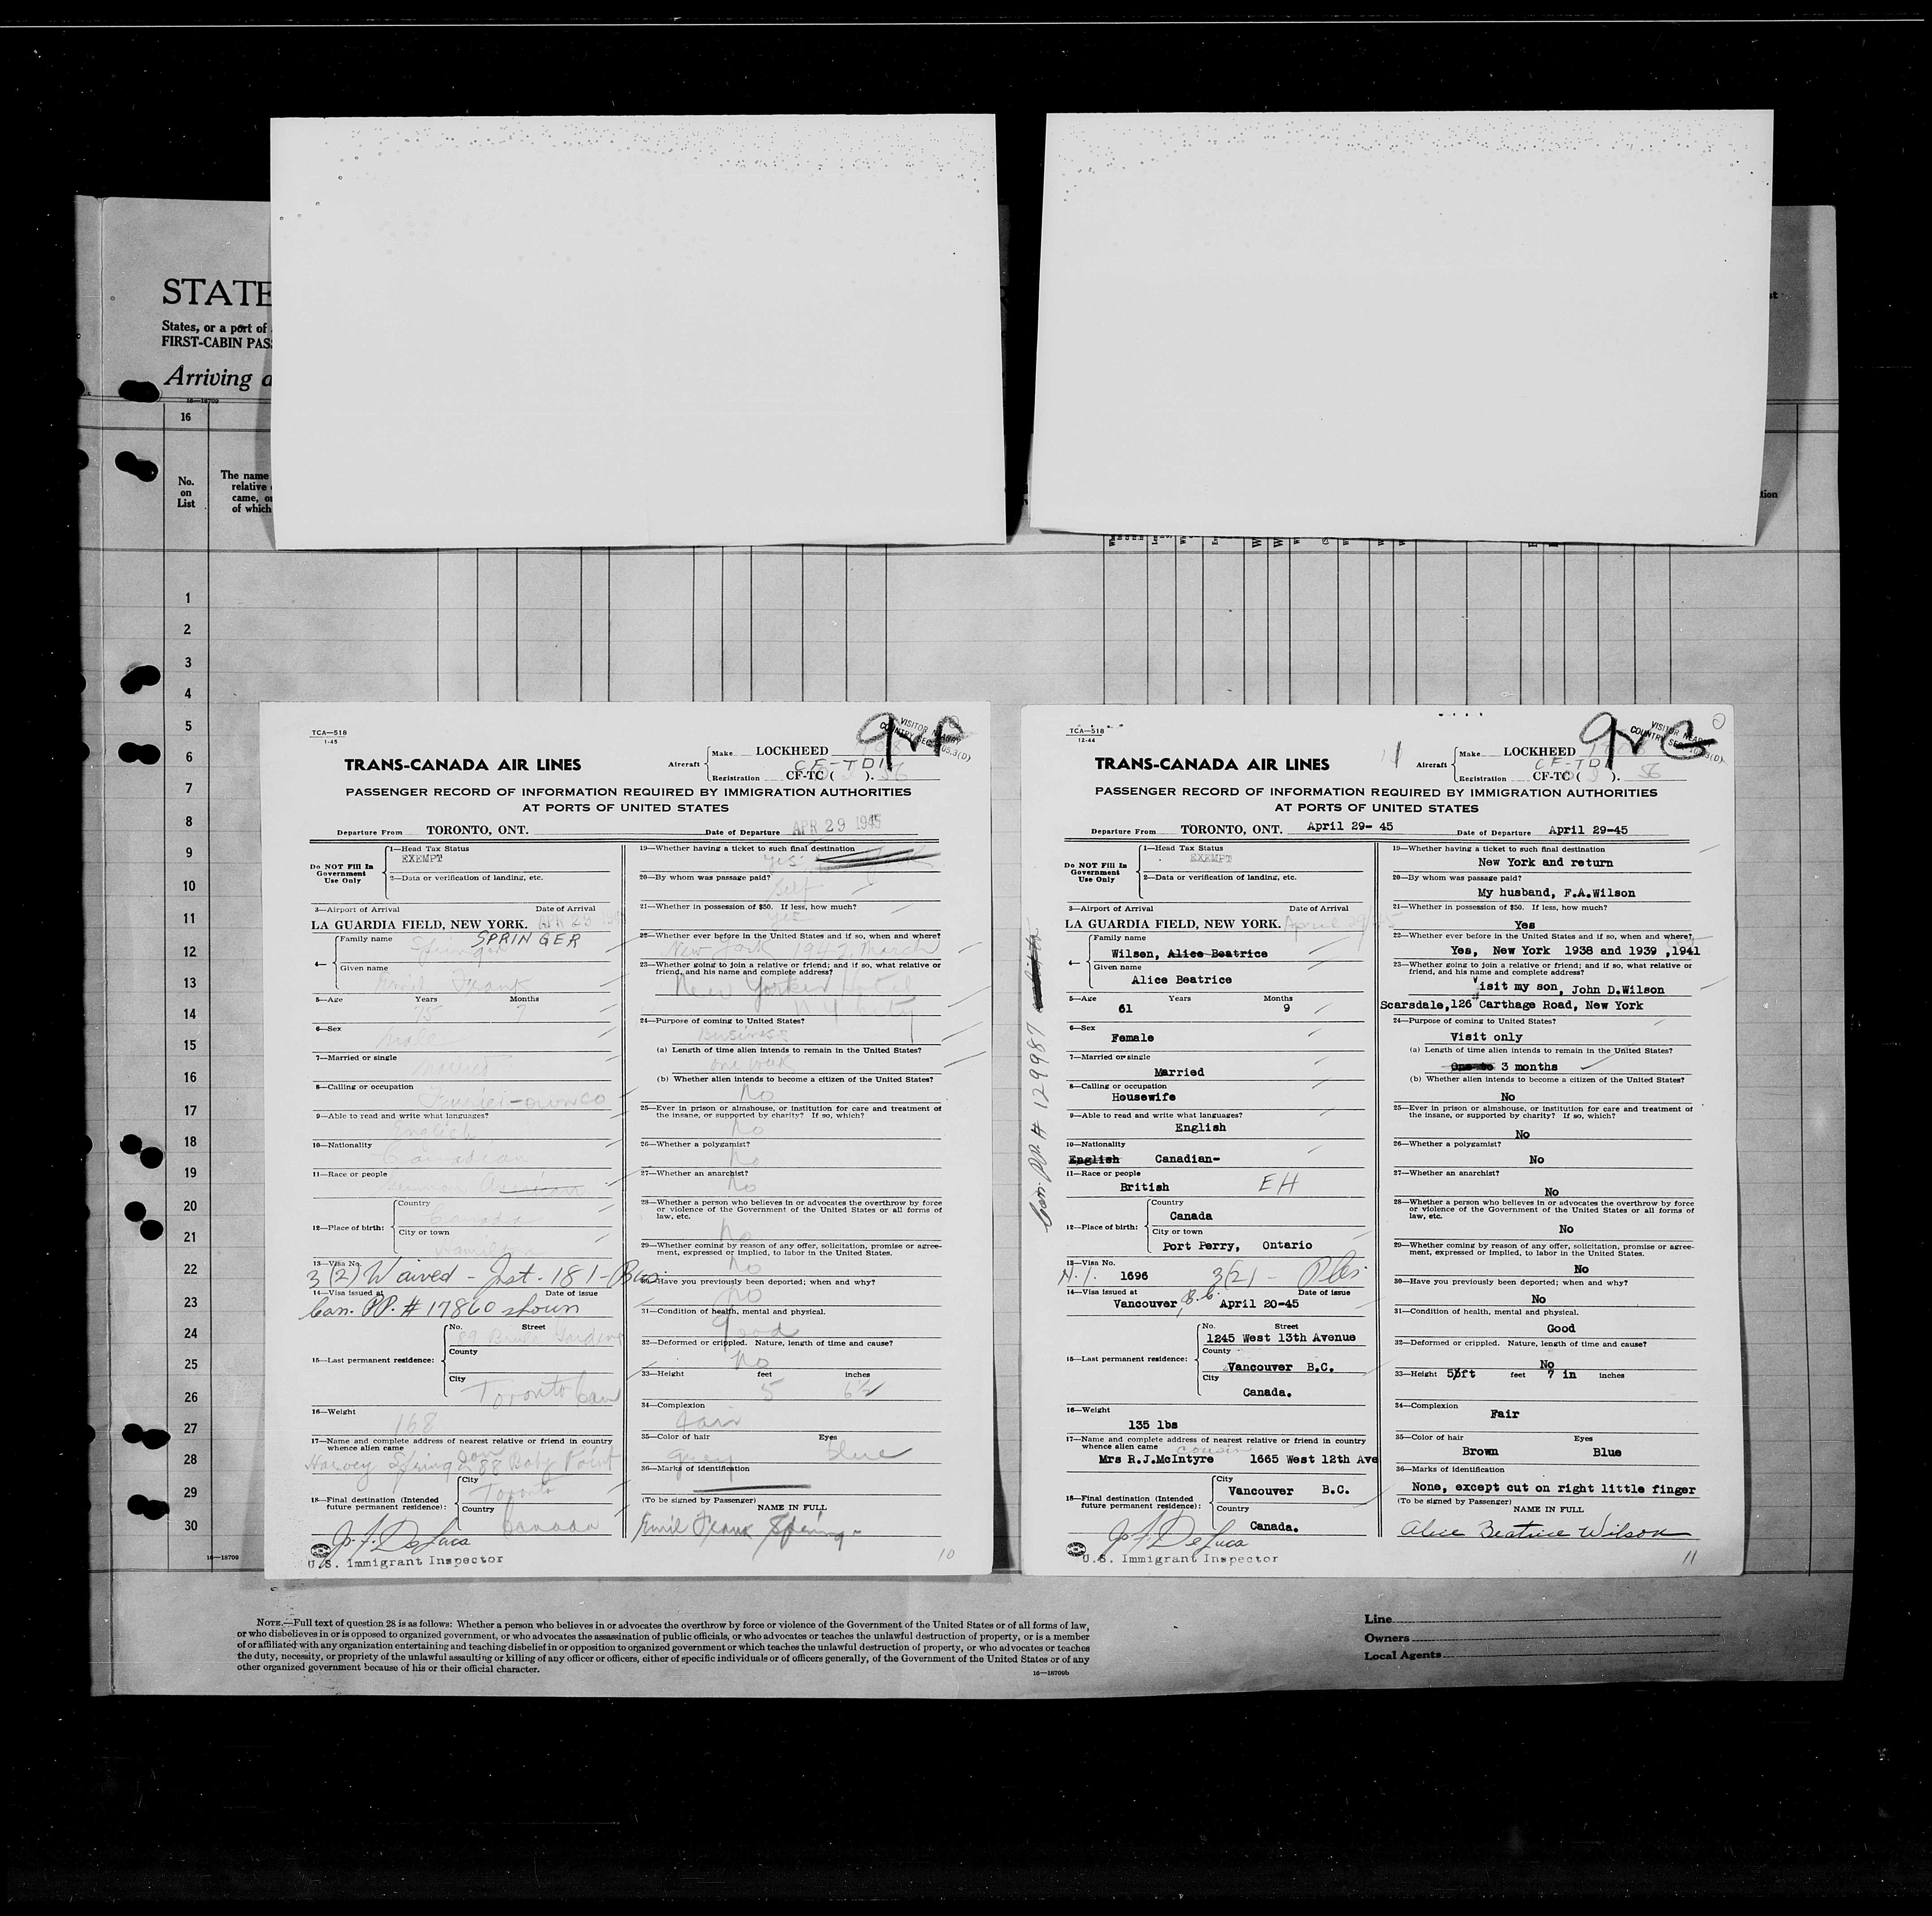 STATE
States, or a port of
FIRST-CABIN PAS
Arriving a
16—18709
16
No.
on
List
The name
relative
came, o
of which
1
2
3
4
5
6
7
8
9
10
11
12
13
14
15
16
17
18
19
20
21
22
23
24
25
26
27
28
29
30
16—18709
TCA—518
1-45
VISITOR NEARBY
COUNTRY SEC. 105.3(D)
Aircraft
Make LOCKHEED
CF-TDI
Registration CF-TC ( ). 56
TRANS-CANADA AIR LINES
PASSENGER RECORD OF INFORMATION REQUIRED BY IMMIGRATION AUTHORITIES
AT PORTS OF UNITED STATES
Departure From TORONTO, ONT. Date of Departure APR 29 1945
Do NOT Fill In
Government
Use Only
1—Head Tax Status
EXEMPT
2—Data or verification of landing, etc.
3—Airport of Arrival Date of Arrival
LA GUARDIA FIELD, NEW YORK. APR 29 1945
4—
Family name
Springer SPRINGER
Given name
Emil Frank
5—Age Years Months
75 7
6—Sex
Male
7—Married or single
Married
8—Calling or occupation
Furrier-own co
9—Able to read and write what languages?
English
10—Nationality
Canadian
11—Race or people
German
12—Place of birth:
Country
Canada
City or town
Hamilton
13—Visa No.
3(2) Waived - Inst. - 181 - Bus.
14—Visa issued at Date of issue
Can. PP. # 17860 shown
15—Last permanent residence:
No. Street
County
City
Toronto Can
16—Weight
168
17—Name and complete address of nearest relative or friend in country
whence alien came son
Harvey Springer 88 Baby Point
18—Final destination (Intended
future permanent residence):
City
Toronto
Country
Canada
J. F. DeLuca
U.S. Immigrant Inspector
19—Whether having a ticket to such final destination
yes
20—By whom was passage paid?
Self
21—Whether in possession of $50. If less, how much?
yes
22—Whether ever before in the United States and if so, when and where?
New York 1942 March
23—Whether going to join a relative or friend; and if so, what relative or
friend, and his name and complete address?
New Yorker Hotel
N Y City
24—Purpose of coming to United States?
Business
(a) Length of time alien intends to remain in the United States?
one week
(b) Whether alien intends to become a citizen of the United States?
No
25—Ever in prison or almshouse, or institution for care and treatment of
the insane, or supported by charity? If so, which?
No
26—Whether a polygamist?
No
27—Whether an anarchist?
No
28—Whether a person who believes in or advocates the overthrow by force
or violence of the Government of the United States or all forms of
law, etc.
No
29—Whether coming by reason of any offer, solicitation, promise or agree-
ment, expressed or implied, to labor in the United States.
No
30—Have you previously been deported; when and why?
No
31—Condition of health, mental and physical.
Good
32—Deformed or crippled. Nature, length of time and cause?
No
33—Height feet inches
5 6½
34—Complexion
Fair
35—Color of hair Eyes
Grey blue
36—Marks of identification
(To be signed by Passenger)
NAME IN FULL
Emil Frank Springer
10
TCA—518
12-44
VISITOR NEARBY
COUNTRY SEC. 105.3(D)
11
Aircraft
Make LOCKHEED
CF-TDI
Registration CF-TC ( ). 56
TRANS-CANADA AIR LINES
PASSENGER RECORD OF INFORMATION REQUIRED BY IMMIGRATION AUTHORITIES
AT PORTS OF UNITED STATES
Departure From TORONTO, ONT. April 29- 45 Date of Departure April 29-45
Do NOT Fill In
Government
Use Only
1—Head Tax Status
EXEMPT
2—Data or verification of landing, etc.
3—Airport of Arrival Date of Arrival
LA GUARDIA FIELD, NEW YORK. April 29/45
4—
Family name
Wilson, Alice Beatrice
Given name
Alice Beatrice
5—Age Years Months
61 9
6—Sex
Female
7—Married or single
Married
8—Calling or occupation
Housewife
9—Able to read and write what languages?
English
10—Nationality
English Canadian-
11—Race or people
British EH
12—Place of birth:
Country
Canada
City or town
Port Perry, Ontario
13—Visa No.
N.I. 1696 3(2) - Pls.
14—Visa issued at Date of issue
Vancouver, B.C. April 20-45
15—Last permanent residence:
No. Street
1245 West 13th Avenue
County
Vancouver B.C.
City
Canada.
16—Weight
135 lbs
17—Name and complete address of nearest relative or friend in country
whence alien came cousin
Mrs R.J.McIntyre 1665 West 12th Ave
18—Final destination (Intended
future permanent residence):
City
Vancouver B.C.
Country
Canada.
J. F. DeLuca
U.S. Immigrant Inspector
Can. PP. # 129987
19—Whether having a ticket to such final destination
New York and return
20—By whom was passage paid?
My husband, F.A.Wilson
21—Whether in possession of $50. If less, how much?
Yes
22—Whether ever before in the United States and if so, when and where?
Yes, New York 1938 and 1939 ,1941
23—Whether going to join a relative or friend; and if so, what relative or
friend, and his name and complete address?
Visit my son, John D.Wilson
Scarsdale,126 Carthage Road, New York
24—Purpose of coming to United States?
Visit only
(a) Length of time alien intends to remain in the United States?
3 months
(b) Whether alien intends to become a citizen of the United States?
No
25—Ever in prison or almshouse, or institution for care and treatment of
the insane, or supported by charity? If so, which?
No
26—Whether a polygamist?
No
27—Whether an anarchist?
No
28—Whether a person who believes in or advocates the overthrow by force
or violence of the Government of the United States or all forms of
law, etc.
No
29—Whether coming by reason of any offer, solicitation, promise or agree-
ment, expressed or implied, to labor in the United States.
No
30—Have you previously been deported; when and why?
No
31—Condition of health, mental and physical.
Good
32—Deformed or crippled. Nature, length of time and cause?
No
33—Height 5ft feet 7 in inches
34—Complexion
Fair
35—Color of hair Eyes
Brown Blue
36—Marks of identification
None, except cut on right little finger
(To be signed by Passenger)
NAME IN FULL
Alice Beatrice Wilson
11
NOTE.—Full text of question 28 is as follows: Whether a person who believes in or advocates the overthrow by force or violence of the Government of the United States or of all forms of law,
or who disbelieves in or is opposed to organized government, or who advocates the assassination of public officials, or who advocates or teaches the unlawful destruction of property, or is a member
of or affiliated with any organization entertaining and teaching disbelief in or opposition to organized government or which teaches the unlawful destruction of property, or who advocates or teaches
the duty, necessity, or propriety of the unlawful assaulting or killing of any officer or officers, either of specific individuals or of officers generally, of the Government of the United States or of any
other organized government because of his or their official character.
16—18709b
Line
Owners
Local Agents